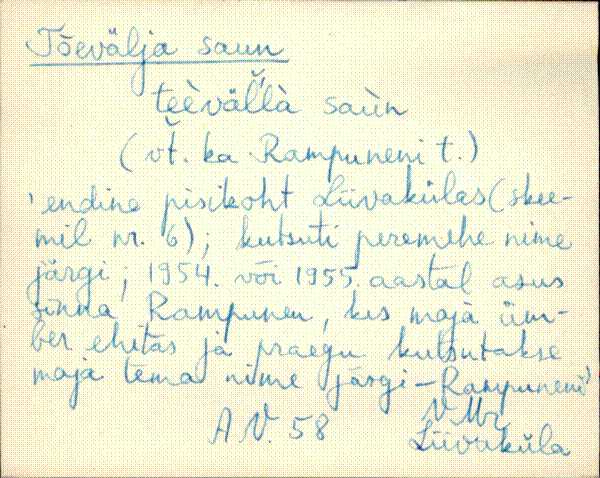 Tõevälja saun
teèväl̆l̀à saùn
(vt. ka Rampuneni t.)
'endine pisikoht Liivakülas (skee-
mil nr. 6); kutsuti peremehe nime
järgi; 1954. või 1955. aastal asus
sinna Rampunen, kes maja üm-
ber ehitas ja praegu kutsutakse
maja tema nime järgi - Rampuneni'
A V. 58
Liivaküla